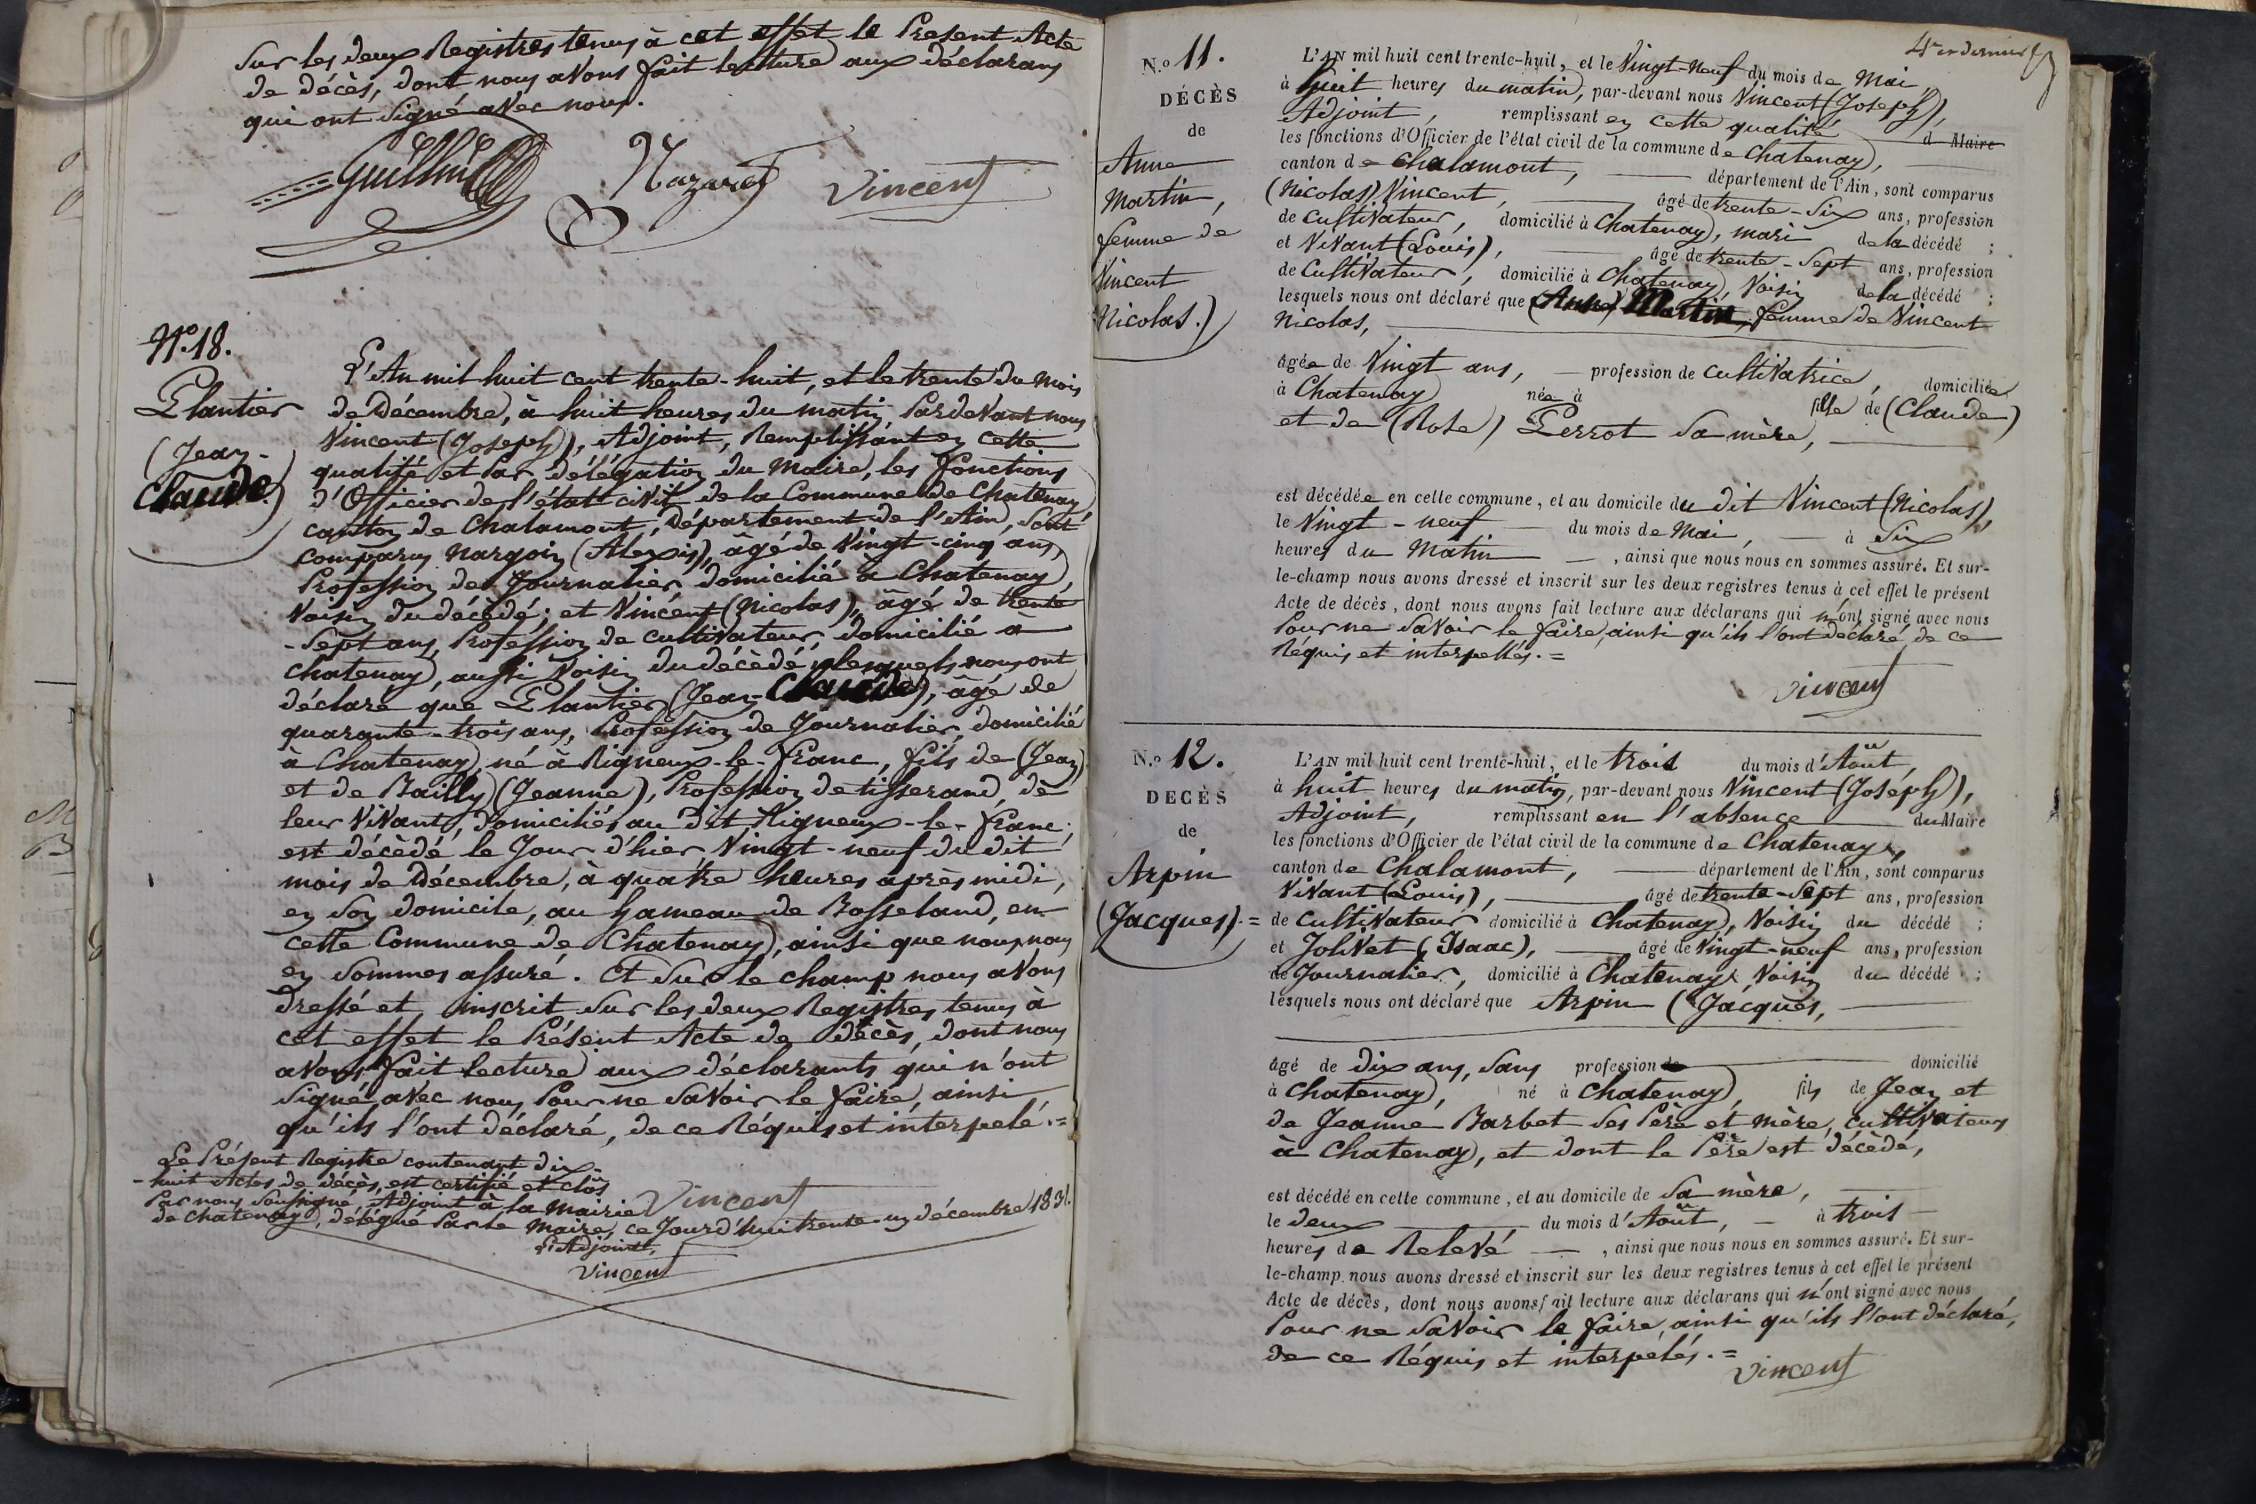 Sur les deux Registres tenus à cet effet le Présent Acte
de décès, dont nous avons fait lecture aux déclarans
qui ont Signé avec nous.
Vincent
N.º 18.
Plantier
(Jean-
Claude)
L'An mil huit cent trente-huit, et le trente du mois
de Décembre, à huit heures du matin, Pardevant nous
Vincent (Joseph), Adjoint, Remplissant en cette
qualité et Par délégation du Maire, les fonctions
d'Officier de l'état civil de la Commune de Chatenay,
canton de Chalamont, Département de l'Ain, Sont
comparus Nargoin (Alexis), âgé de Vingt-cinq ans,
Profession de Journalier domicilié à Chatenay,
Voisin du décédé; et Vincent (Nicolas), âgé de trente
-Sept ans, Profession de cultivateur, domicilié à
Chatenay, aussi Voisin du décédé; lesquels nous ont
déclaré que Plantier (Jean-Claude), âgé de
quarante-trois ans, Profession de Journalier, domicilié
à Chatenay, né à Rigneux-le-franc, fils de (Jean)
et de Bailly (Jeanne), Profession de tisserand, de
leur Vivant, domiciliés au Dit Rigneux-le-franc;
est décédé le Jour d'hier Vingt-neuf du dit
mois de Décembre, à quatre heures après midi,
en Son domicile, au hameau de Bosseland, en
cette Commune de Chatenay, ainsi que nous nous
en Sommes assuré. Et Sur le champ nous avons
Dressé et inscrit Sur les deux Registres tenus à
cet effet le Présent Acte de décès, dont nous
avons fait lecture aux déclarants qui n'ont
Signé avec nous Pour ne Savoir le faire, ainsi
qu'ils l'ont déclaré, de ce Réquis et interpelé.=
Vincent
Le Présent Registre contenant dix-
-huit Actes de décès, est certifié et clôs
Par nous Soussigné Adjoint à la Mairie
de Chatenay, délégué Par le Maire, ce Jourd'hui trente-un décembre 1838.
L'Adjoint,
Vincent
N.º 11.
DÉCÈS
de
Anne
Martin,
femme de
Vincent
Nicolas.)
L'AN mil huit cent trente-huit, et le Vingt-Neuf du mois de Mai,
à huit heures du matin, par-devant nous Vincent (Joseph),
Adjoint, remplissant en cette qualité d Maire
les fonctions d'Officier de l'état civil de la commune de Chatenay,
canton de Chalamont, département de l'Ain, sont comparus
(Nicolas) Vincent, âgé de trente-Six ans, profession
de Cultivateur, domicilié à Chatenay, mari de la décédé ;
et Vivant (Louis), âgé de trente-Sept ans, profession
de Cultivateur, domicilié à Chatenay, Voisin de la décédé ;
lesquels nous ont déclaré que (Anne) Martin, femme de Vincent
Nicolas,
âgée de Vingt ans, profession de cultivatrice, domiciliée
à Chatenay née à fille de (Claude)
et de (Rose) Perrot Sa mère,
est décédée en cette commune, et au domicile du dit Vincent (Nicolas),
le Vingt-neuf du mois de Mai, à Six
heures du Matin, ainsi que nous nous en sommes assuré. Et sur-
le-champ nous avons dressé et inscrit sur les deux registres tenus à cet effet le présent
Acte de décès, dont nous avons fait lecture aux déclarans qui n'ont signé avec nous
Pour ne Savoir le faire, ainsi qu'ils l'ont déclaré, de ce
Réquis et interpellés.=
Vincent
N.º 12.
DECÈS
de
Arpin
(Jacques).=
L'AN mil huit cent trente-huit, et le trois du mois d'Août,
à huit heures du matin, par-devant nous Vincent (Joseph),
Adjoint, remplissant en l'absence du Maire
les fonctions d'Officier de l'état civil de la commune de Chatenay,
canton de Chalamont, département de l'Ain, sont comparus
Vivant (Louis), âgé de trente-Sept ans, profession
de Cultivateur domicilié à Chatenay, Voisin du décédé ;
et Jolivet (Isaac), âgé de Vingt-neuf ans, profession
de Journalier, domicilié à Chatenay, Voisin du décédé ;
lesquels nous ont déclaré que Arpin (Jacques,
âgé de dix ans, Sans profession de domicilié
à Chatenay, né à Chatenay, fils de Jean et
de Jeanne Barbet Ses Père et mère, cultivateurs
à Chatenay, et dont le Père est décédé,
est décédé en cette commune, et au domicile de Sa mère,
le deux du mois d'Août, à trois
heures de Relevé, ainsi que nous nous en sommes assuré. Et sur-
le-champ nous avons dressé et inscrit sur les deux registres tenus à cet effet le présent
Acte de décès, dont nous avons fait lecture aux déclarans qui n'ont signé avec nous
Pour ne Savoir le faire, ainsi qu'ils l'ont déclaré,
de ce Réquis et interpelés.=
Vincent